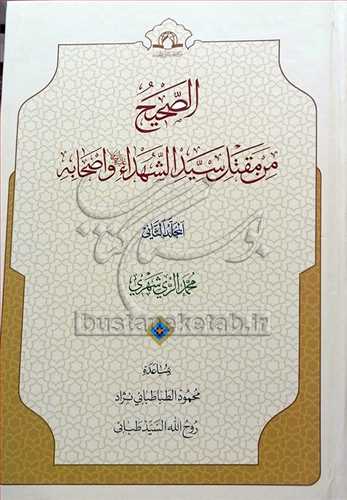 الصحيح
من مقتل سيد الشهداء وأصحابه
المجلد الثاني
محمد الري شهري
bustaneketab.ir
بمساعدة
محمود الطباطبائي نژاد
روح الله السيد طبائي